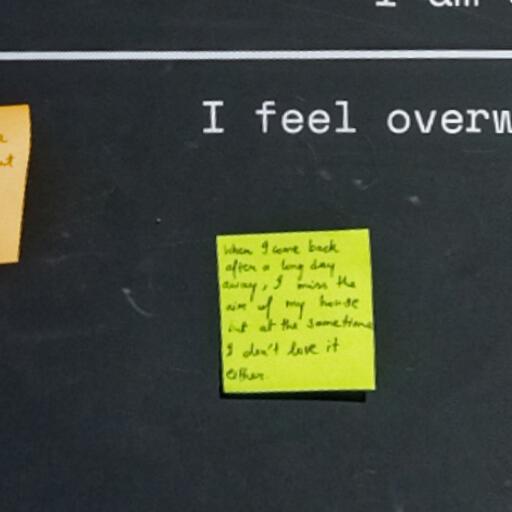 I am
I feel overw
when I come back
after a long day
away, I miss the
of my house
but at the sametime
I don't love it
either.